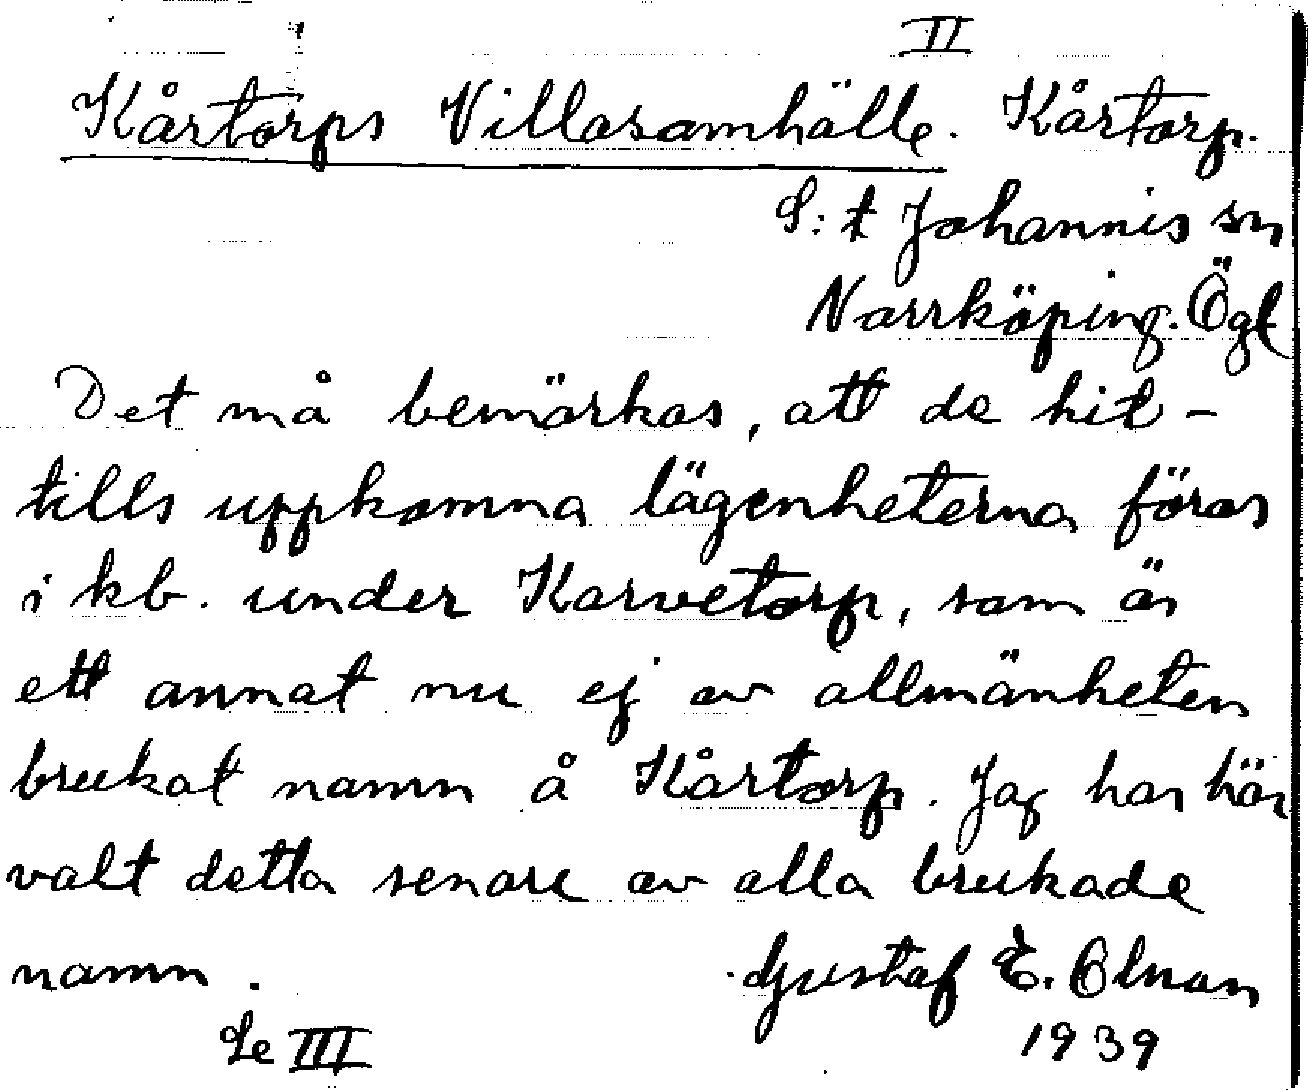 II
Kårtorps Villasamhälle. Kårtorp.
S:t Johannis sn
Norrköping. Ögl
Det må bemärkas, att de hit-
tills uppkomna lägenheterna föras
i kb. under Karvetorp, som är
ett annat nu ej av allmänheten
brukat namn å Kårtorp. Jag har här
valt detta senare av alla brukade
namn.
Gustaf E. Elman
Se III
1939